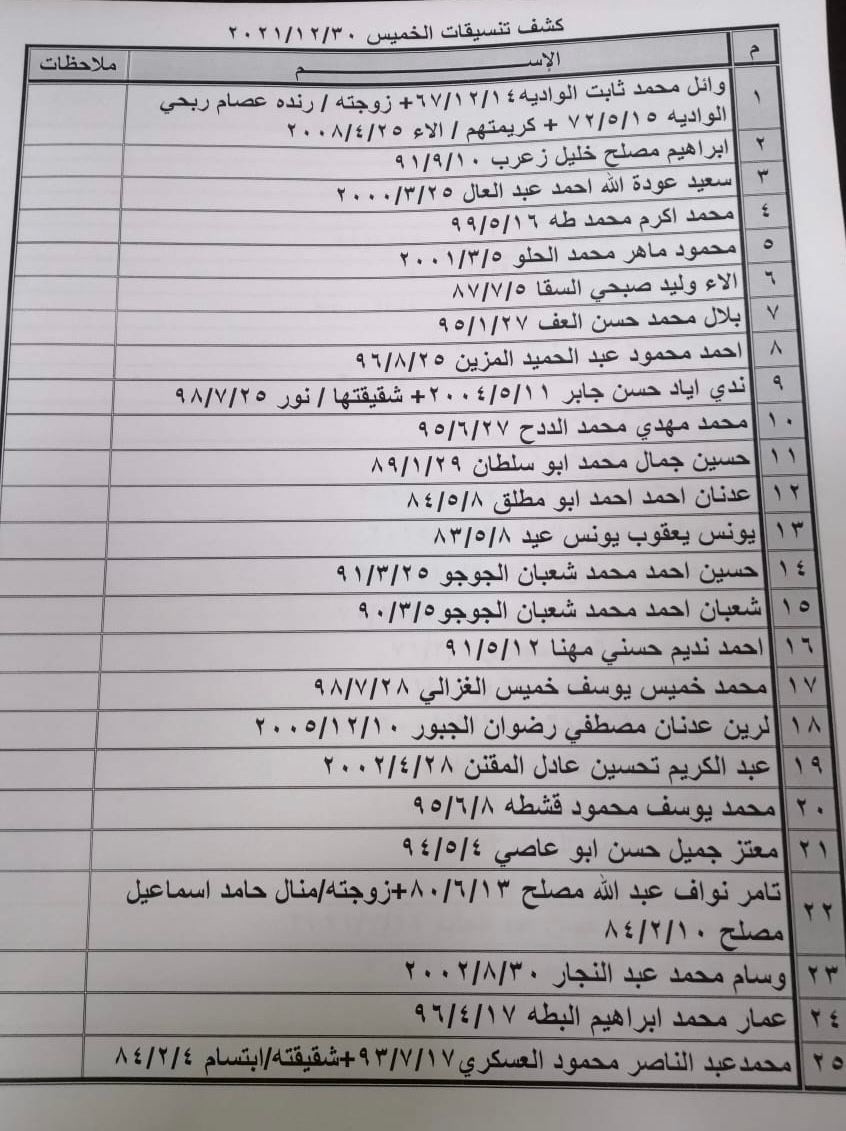 كشف تنسيقات الخميس ٢٠٢١/١٢/٣٠
م الإســـــــــــــــــــــــم ملاحظات
١ وائل محمد ثابت الواديه ٦٧/١٢/١٤+ زوجته / رنده عصام ربحي
الواديه ٧٢/٥/١٥ + كريمتهم / الاء ٢٠٠٨/٤/٢٥
٢ ابراهيم مصلح خليل زعرب ٩١/٩/١٠
٣ سعيد عودة الله احمد عبد العال ٢٠٠٠/٣/٢٥
٤ محمد اكرم محمد طه ٩٩/٥/١٦
٥ محمود ماهر محمد الحلو ٢٠٠١/٣/٥
٦ الاء وليد صبحي السقا ٨٧/٧/٥
٧ بلال محمد حسن العف ٩٥/١/٢٧
٨ احمد محمود عبد الحميد المزين ٩٦/٨/٢٥
٩ ندي اياد حسن جابر ٢٠٠٤/٥/١١+ شقيقتها / نور ٩٨/٧/٢٥
١٠ محمد مهدي محمد الددح ٩٥/٦/٢٧
١١ حسين جمال محمد ابو سلطان ٨٩/١/٢٩
١٢ عدنان احمد احمد ابو مطلق ٨٤/٥/٨
١٣ يونس يعقوب يونس عيد ٨٣/٥/٨
١٤ حسين احمد محمد شعبان الجوجو ٩١/٣/٢٥
١٥ شعبان احمد محمد شعبان الجوجو ٩٠/٣/٥
١٦ احمد نديم حسني مهنا ٩١/٥/١٢
١٧ محمد خميس يوسف خميس الغزالي ٩٨/٧/٢٨
١٨ لرين عدنان مصطفي رضوان الجبور ٢٠٠٥/١٢/١٠
١٩ عبد الكريم تحسين عادل المقنن ٢٠٠٢/٤/٢٨
٢٠ محمد يوسف محمود قشطه ٩٥/٦/٨
٢١ معتز جميل حسن ابو عاصي ٩٤/٥/٤
٢٢ تامر نواف عبد الله مصلح ٨٠/٦/١٣+زوجته/منال حامد اسماعيل
مصلح ٨٤/٢/١٠
٢٣ وسام محمد عبد النجار ٢٠٠٢/٨/٣٠
٢٤ عمار محمد ابراهيم البطه ٩٦/٤/١٧
٢٥ محمدعبد الناصر محمود العسكري ٩٣/٧/١٧+شقيقته/ابتسام ٨٤/٢/٤